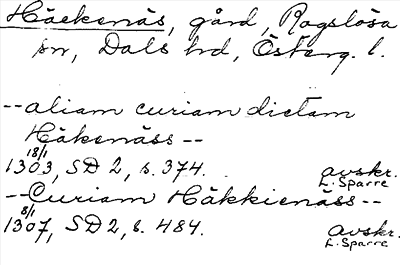 Häckenäs, gård, Rogslösa
sn, Dals hd, Österg. l.
--aliam curiam dictam
Häkenäss--
18/1
1303, SD 2, s. 374. avskr.
L. Sparre
--Curiam Häkkienäss--
8/1
1307, SD 2, s. 484. avskr.
L. Sparre